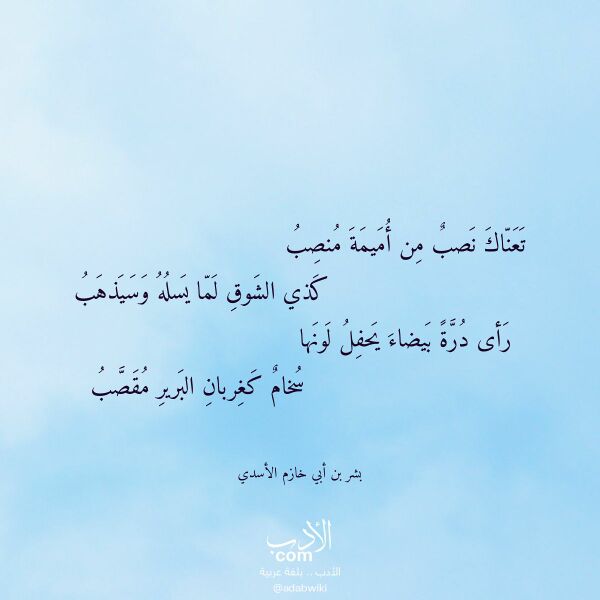 تَعَنّاكَ نَصبٌ مِن أُمَيمَةَ مُنصِبُ
كَذي الشَوقِ لَمّا يَسلُهُ وَسَيَذهَبُ
رَأى دُرَّةً بَيضاءَ يَحفِلُ لَونَها
سُخامٌ كَغِربانِ البَريرِ مُقَصَّبُ
بشر بن أبي خازم الأسدي
الأدب
com
الأدب .. بلغة عربية
@adabwiki